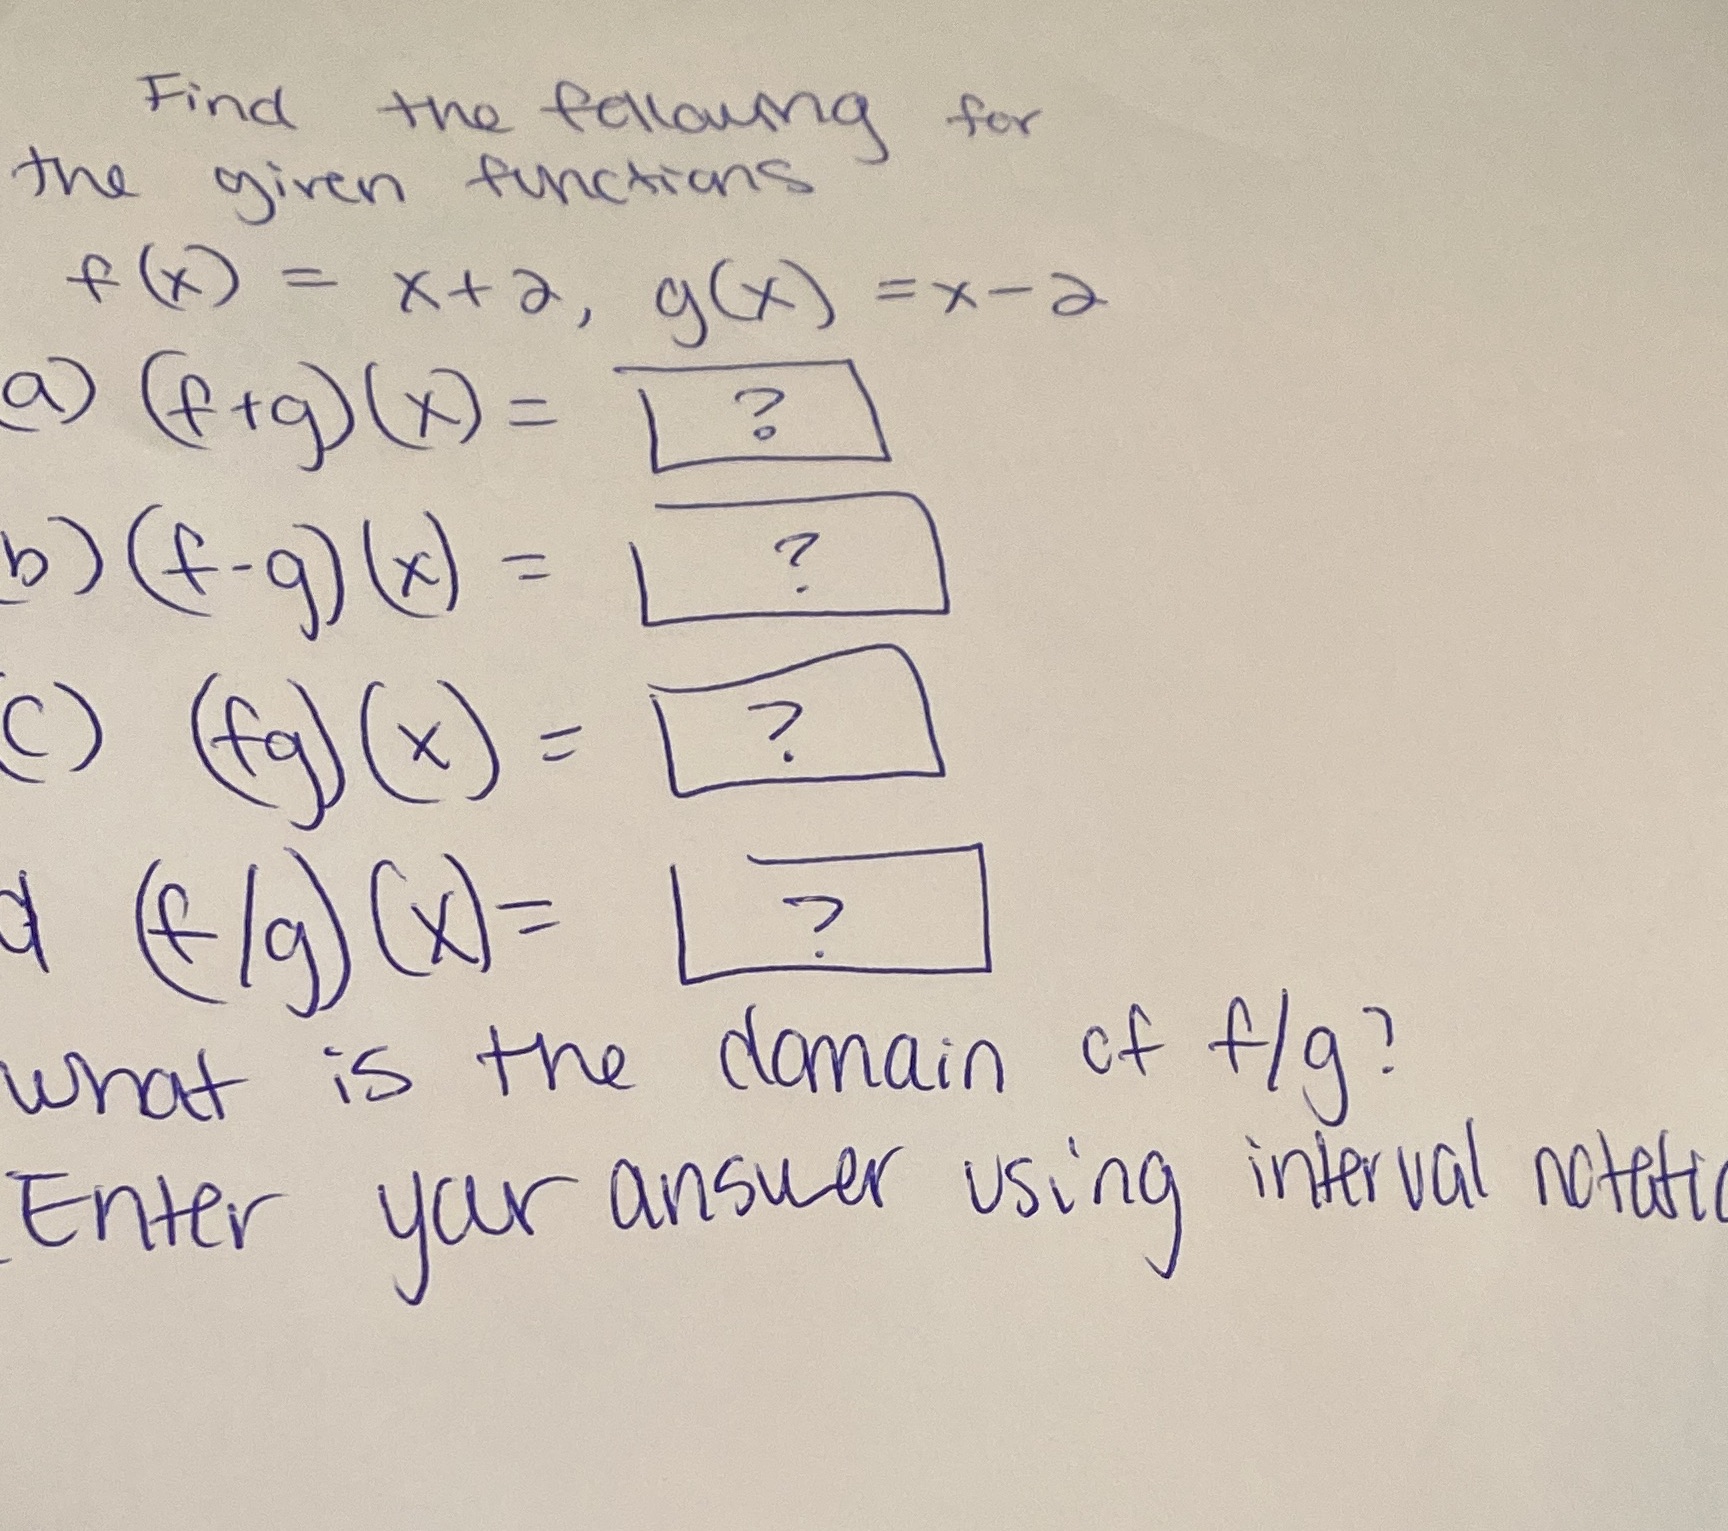 Find the following for
the given functions
f(x) = x+2, g(x) = x-2
a) (f+g)(x) = ?
b) (f-g)(x) = ?
c) (fg)(x) = ?
d (f/g)(x) = ?
what is the domain of f/g?
Enter your answer using interval notatio